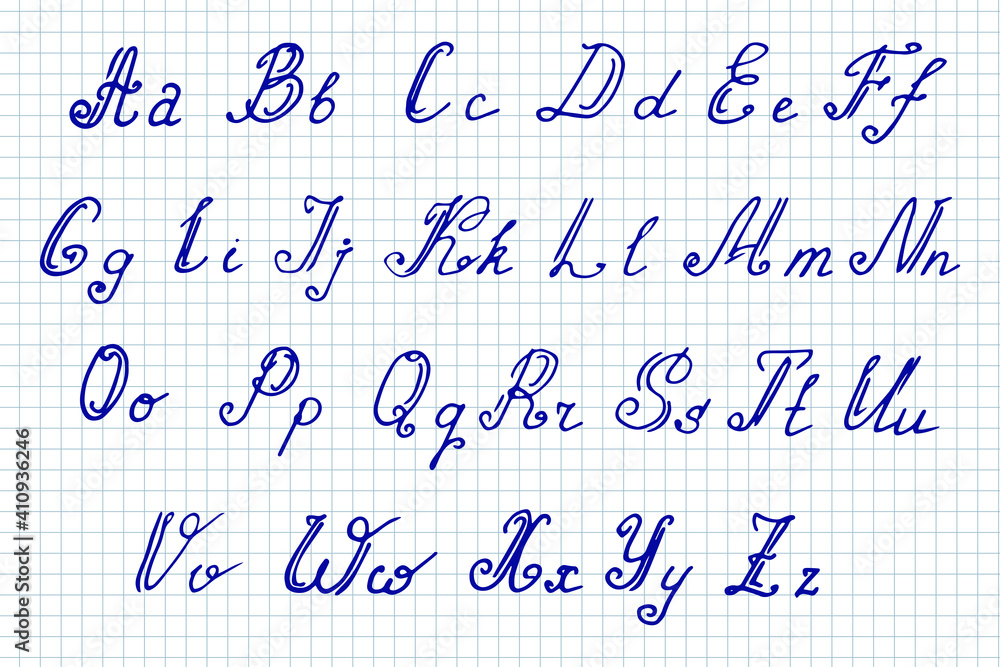 Aa Bb Cc Dd Ee Ff
Gg Ii Jj Kk Ll Mm Nn
Oo Pp Qq Rr Ss Tt Uu
Vv Ww Xx Yy Zz
Adobe Stock | #410936246